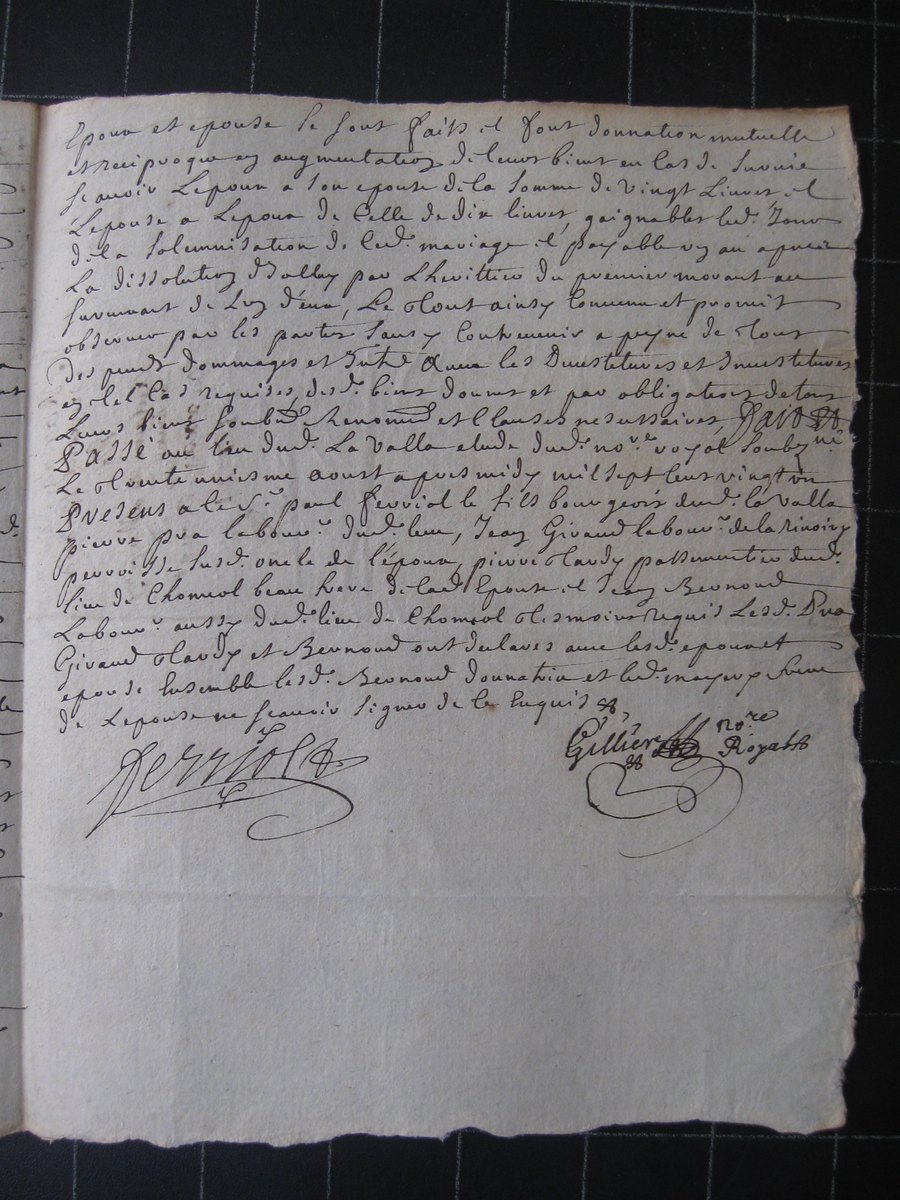 Epoux et epouse se sont faits et font donnation mutuelle
et reciproque en augmentation de leurs biens en cas de survie
scavoir Lepoux a son epouse de la somme de vingt Livres et
Lepouse a Lepoux de Celle de dix livres, gaignables led. Jour
de la solemnisation de led. mariage et payable un an apres
La dissolution dicelluy par Lherittier du premier morant au
survivant de Luy d'eux, Le tout ainsy Convenu et promis
observer par les parties sans y Contrevenir a peyne de tous
des pends dommages et Inthe. avec les Devestitures et Investitures
en tel cas requises, desd. biens donnés et par obligation de tous
Leurs biens soubm. Renonon. et Clauses nessessaires, Fait et
Passé au lieu dud. La Valla etude dud. nore. royal soubne.
Le trente uniesme aoust apres midy mil sept cens vingt un
Presens a Ce Sr. paul ferriol le fils bourgeois dud. la Valla
pierre pra labour. dud. lieu, Jean Giraud labour. de la
perroisse susd. oncle de l'epoux, pierre tardy passementier dud.
lieu de Chomiol beau frere de lad. Epouse et Jean Bernond
Labour. aussy dud. lieu de Chomiol tesmoins requis Lesd. Pra
Giraud tardy et Bernond ont declares avec lesd. epoux et
epouse Ensemble lesd. Bernond donnatrice et led. frere
de Lepouse ne scavoir signer de ce Enquis
ferriol
Gillier Nore.
Royal